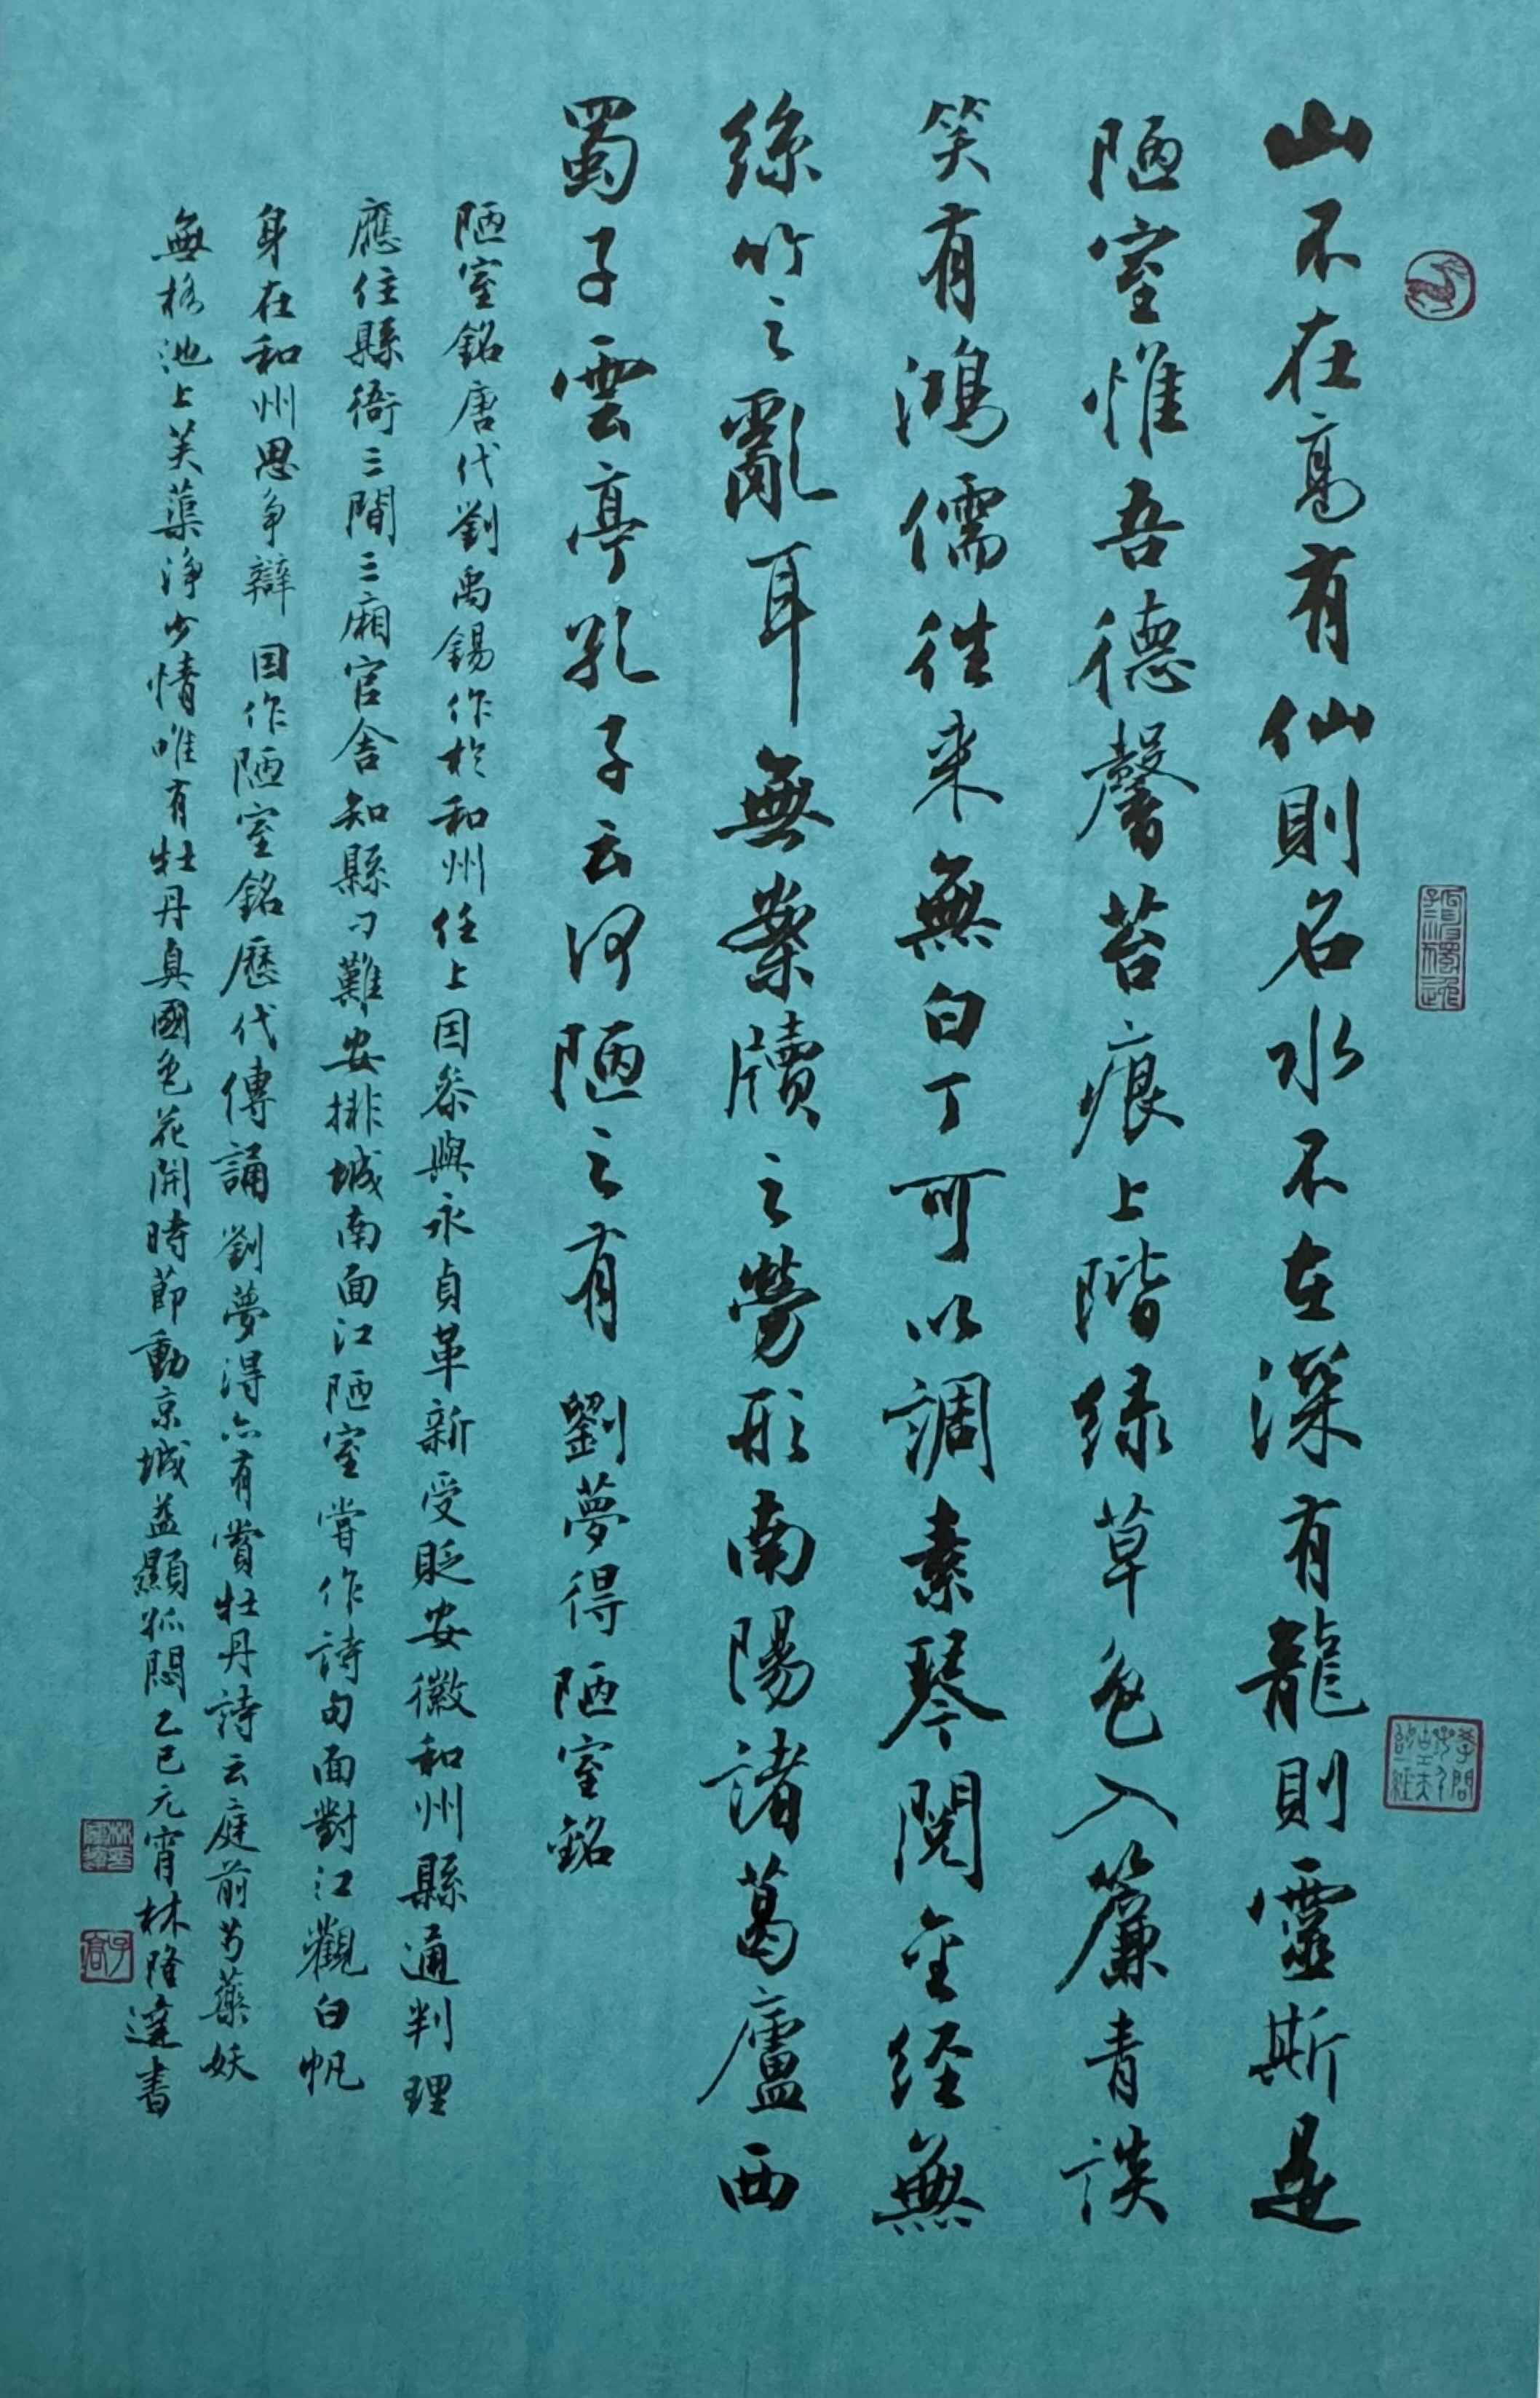 山不在高有仙則名水不在深有龍則靈斯是
陋室惟吾德馨苔痕上階绿草色入簾青談
笑有鴻儒往来無白丁可以調素琴閱金经無
絲竹之亂耳無案牘之勞形南陽諸葛廬西
蜀子雲亭孔子云何陋之有 劉夢得陋室銘
陋室銘唐代劉禹錫作於和州任上因叅與永貞革新受貶安徽和州縣通判理
應住縣衙三間三廂官舍知縣刁難安排城南面江陋室嘗作詩句面對江觀白帆
身在和州思争辯 因作陋室銘歷代傳誦劉夢得亦有賞牡丹詩云庭前芍藥妖
無格池上芙蕖淨少情唯有牡丹真國色花開時節動京城益顯孤悶乙巳元宵林隆達書